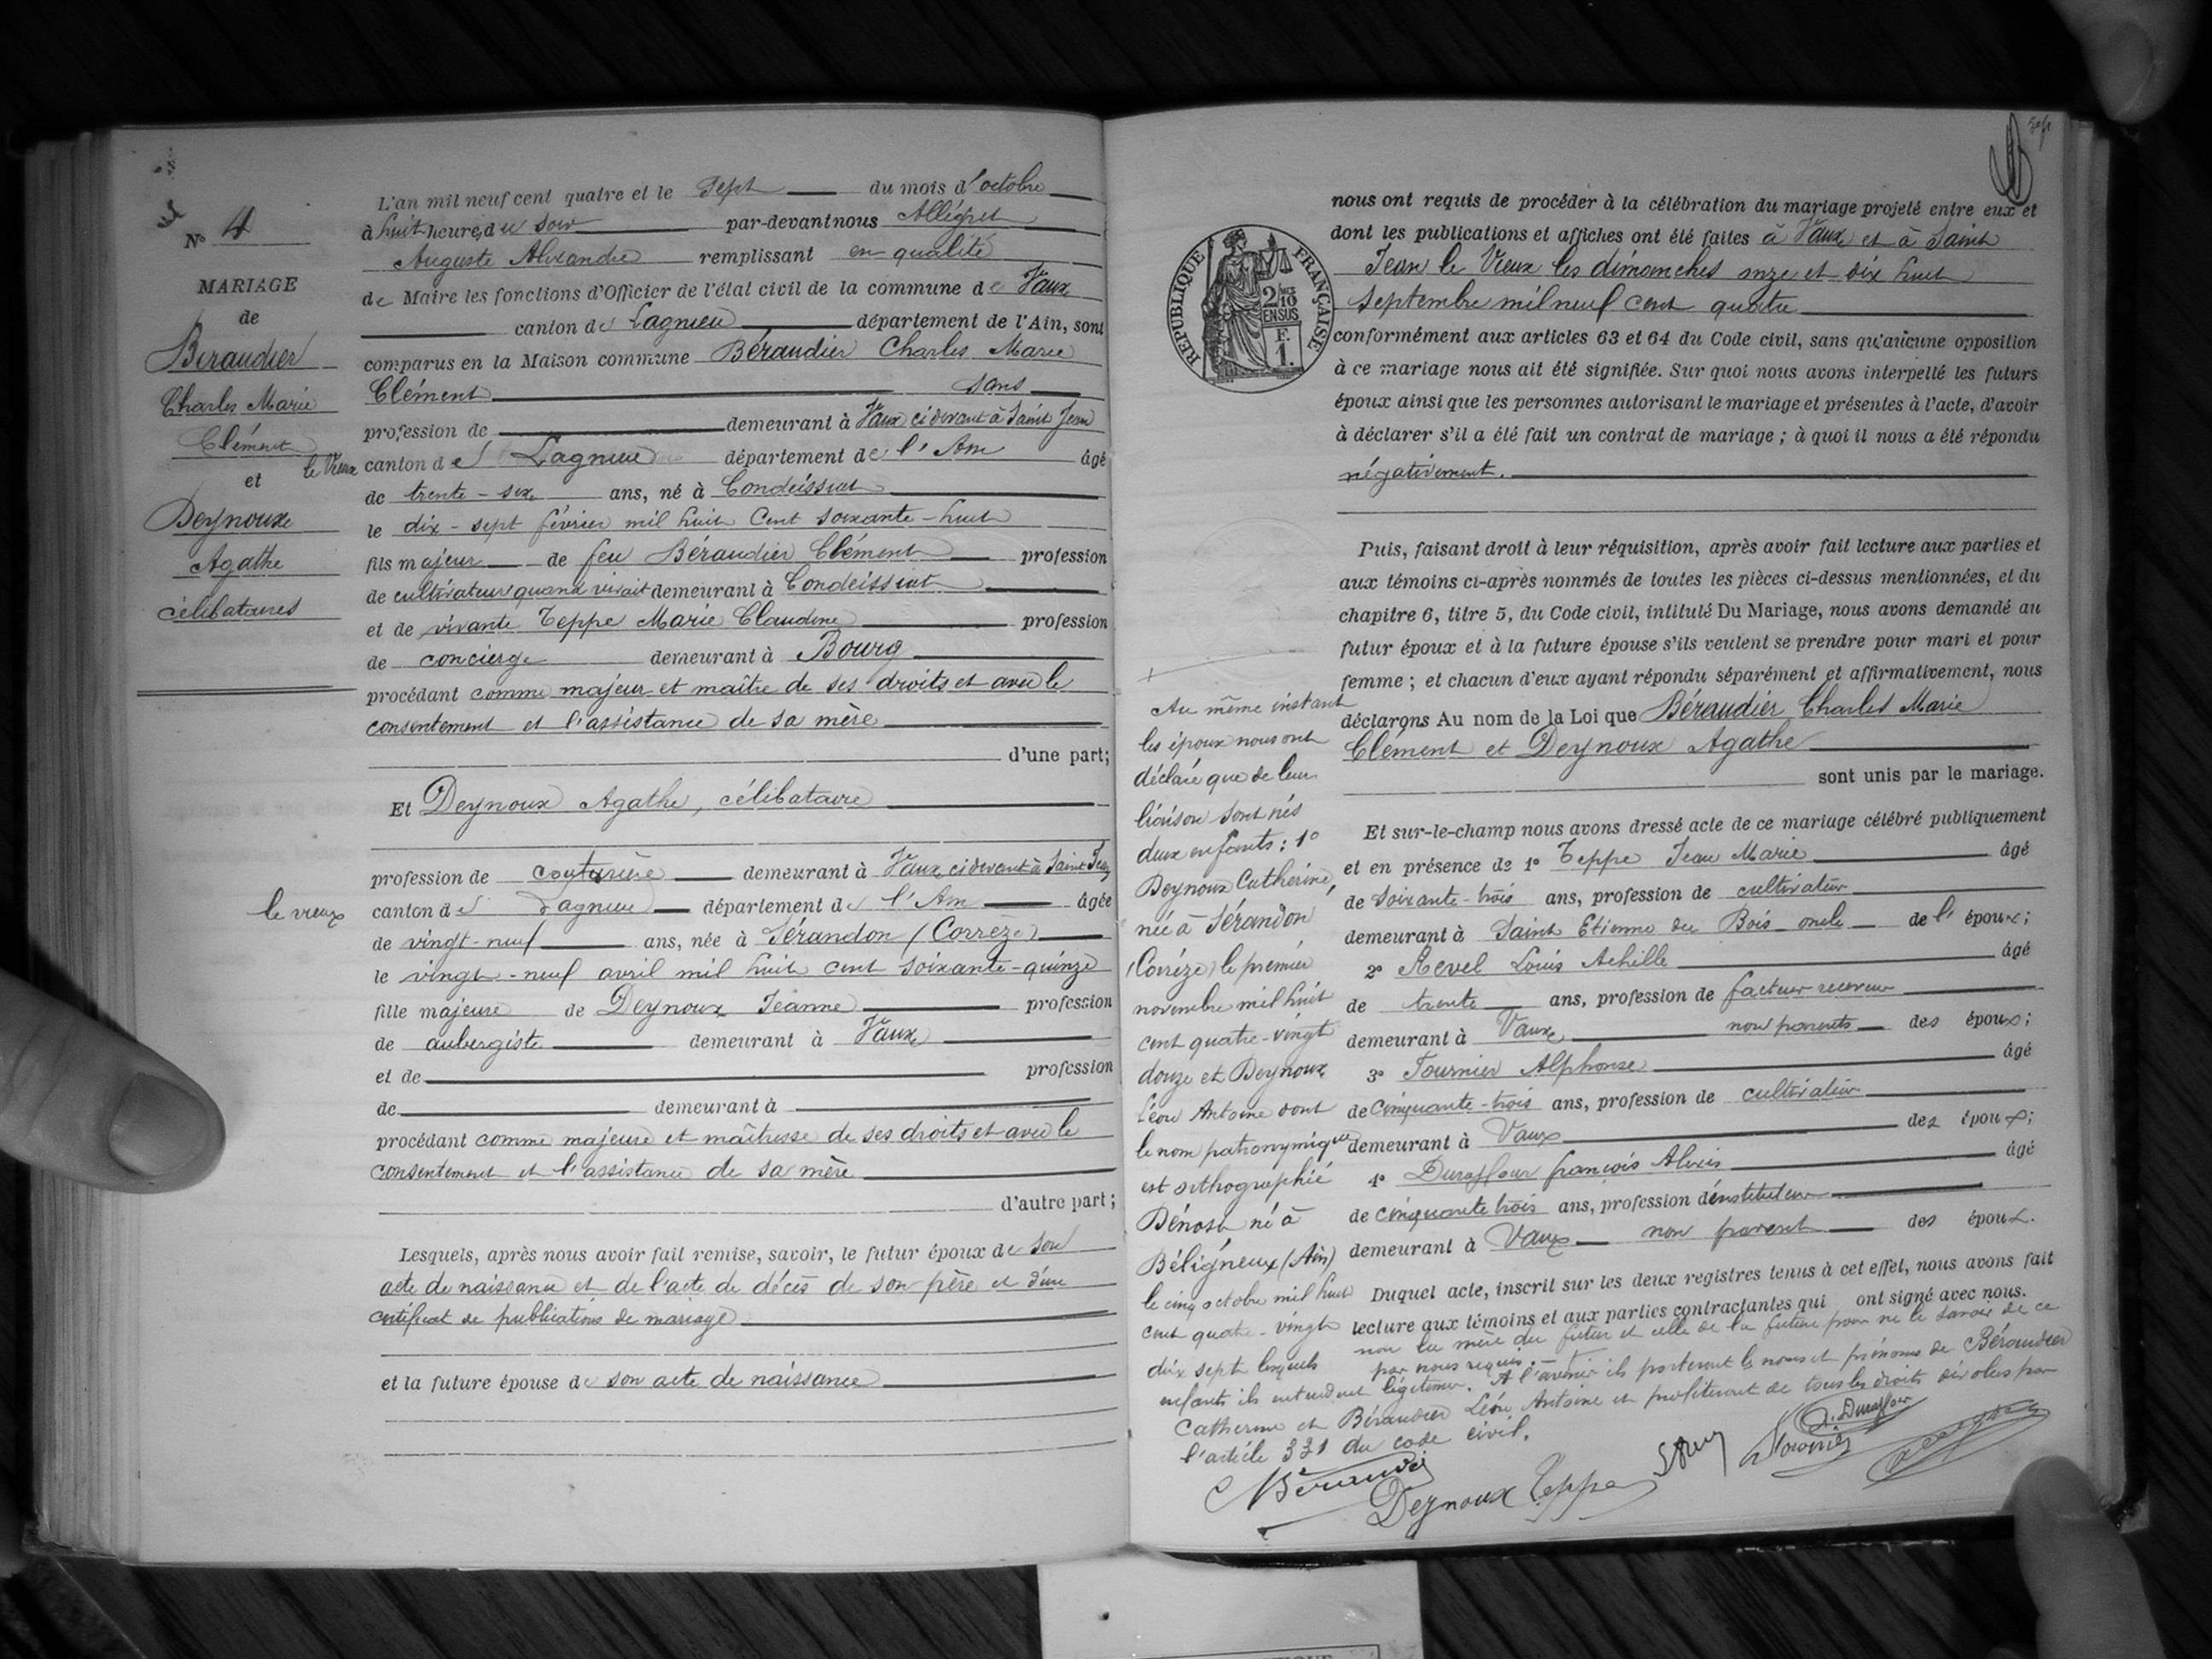 N° 4
MARIAGE
de
Béraudier
Charles Marie
Clément
et
Deynoux
Agathe
célibataires
L'an mil neuf cent quatre et le sept du mois d'octobre
à huit heures du soir par-devant nous Allégret
Auguste Alexandre remplissant en qualité
de Maire les fonctions d'Officier de l'état civil de la commune de Vaux
canton de Lagnieu département de l'Ain, sont
comparus en la Maison commune Béraudier Charles Marie
Clément sans
profession de demeurant à Vaux ci devant à Saint Jean
le Vieux canton de Lagnieu département de l'Ain âgé
de trente-six ans, né à Condeissiat
le dix-sept février mil huit cent soixante-huit
fils majeur de feu Béraudier Clément profession
de cultivateur quand vivait demeurant à Condeissiat
et de vivante Teppe Marie Claudine profession
de concierge demeurant à Bourg
procédant comme majeur et maître de ses droits et avec le
consentement et l'assistance de sa mère
d'une part;
Et Deynoux Agathe, célibataire
profession de couturière demeurant à Vaux, ci devant à Saint Jean
le vieux canton de Lagnieu département de l'Ain âgée
de vingt-neuf ans, née à Sérandon (Corrèze)
le vingt-neuf avril mil huit cent soixante-quinze
fille majeure de Deynoux Jeanne profession
de aubergiste demeurant à Vaux
et de profession
de demeurant à
procédant comme majeure et maîtresse de ses droits et avec le
consentement et l'assistance de sa mère
d'autre part;
Lesquels, après nous avoir fait remise, savoir, le futur époux de son
acte de naissance et de l'acte de décès de son père et d'un
certificat de publications de mariage
et la future épouse de son acte de naissance
RÉPUBLIQUE FRANÇAISE
2/10 EN SUS
F.
1.
nous ont requis de procéder à la célébration du mariage projeté entre eux et
dont les publications et affiches ont été faites à Vaux et à Saint
Jean le Vieux les dimanches onze et dix huit
septembre mil neuf cent quatre
conformément aux articles 63 et 64 du Code civil, sans qu'aucune opposition
à ce mariage nous ait été signifiée. Sur quoi nous avons interpellé les futurs
époux ainsi que les personnes autorisant le mariage et présentes à l'acte, d'avoir
à déclarer s'il a été fait un contrat de mariage ; à quoi il nous a été répondu
négativement.
Puis, faisant droit à leur réquisition, après avoir fait lecture aux parties et
aux témoins ci-après nommés de toutes les pièces ci-dessus mentionnées, et du
chapitre 6, titre 5, du Code civil, intitulé Du Mariage, nous avons demandé au
futur époux et à la future épouse s'ils veulent se prendre pour mari et pour
femme ; et chacun d'eux ayant répondu séparément et affirmativement, nous
déclarons Au nom de la Loi que Béraudier Charles Marie
Clément et Deynoux Agathe
sont unis par le mariage.
Et sur-le-champ nous avons dressé acte de ce mariage célébré publiquement
et en présence de 1° Teppe Jean Marie âgé
de soixante-trois ans, profession de cultivateur
demeurant à Saint Etienne du Bois oncle de l'époux;
2° Revel Louis Achille âgé
de trente ans, profession de facteur receveur
demeurant à Vaux non parents des époux;
3° Tournier Alphonse âgé
de cinquante-trois ans, profession de cultivateur
demeurant à Vaux des époux;
4° Duraffour françois Alexis âgé
de cinquante trois ans, profession d'instituteur
demeurant à Vaux non parent des époux.
Duquel acte, inscrit sur les deux registres tenus à cet effet, nous avons fait
lecture aux témoins et aux parties contractantes qui ont signé avec nous.
non la mère du futur et celle de la future pour ne le savoir de ce
par nous requis.
+
Au même instant
les époux nous ont
déclaré que de leur
liaison sont nés
deux enfants : 1°
Deynoux Catherine,
née à Sérandon
(Corrèze) le premier
novembre mil huit
cent quatre-vingt
douze et Deynoux
Léon Antoine dont
le nom patronymique
est orthographié
Dénost né à
Béligneux (Ain)
le cinq octobre mil huit
cent quatre-vingt
dix sept lesquels
enfants ils entendent légitimer. A l'avenir ils porteront les noms et prénoms de Béraudier
Catherine et Béraudier Léon Antoine et profiteront de tous les droits dévolus par
l'article 331 du code civil.
Béraudier
Deynoux Teppe
Tournier
A. Duraffour